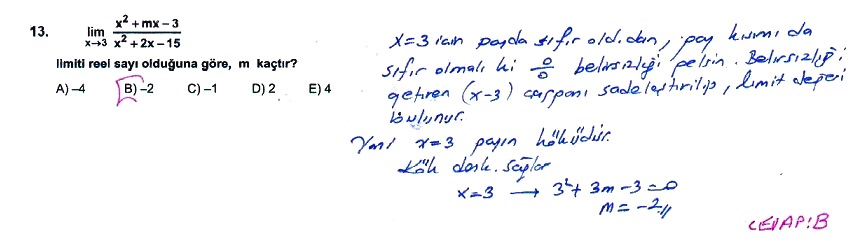 13. lim x→3 x² + mx − 3 / x² + 2x − 15
limiti reel sayı olduğuna göre, m kaçtır?
A) −4 B) −2 C) −1 D) 2 E) 4
x=3 için payda sıfır old.dan, pay kısmı da
sıfır olmalı ki 0/0 belirsizliği gelsin. Belirsizliği
getiren (x-3) çarpanı sadeleştirilip, limit değeri
bulunur.
Yani x=3 payın köküdür.
Kök denk. sağlar
x=3 → 3² + 3m − 3 = 0
m = −2 //
CEVAP: B